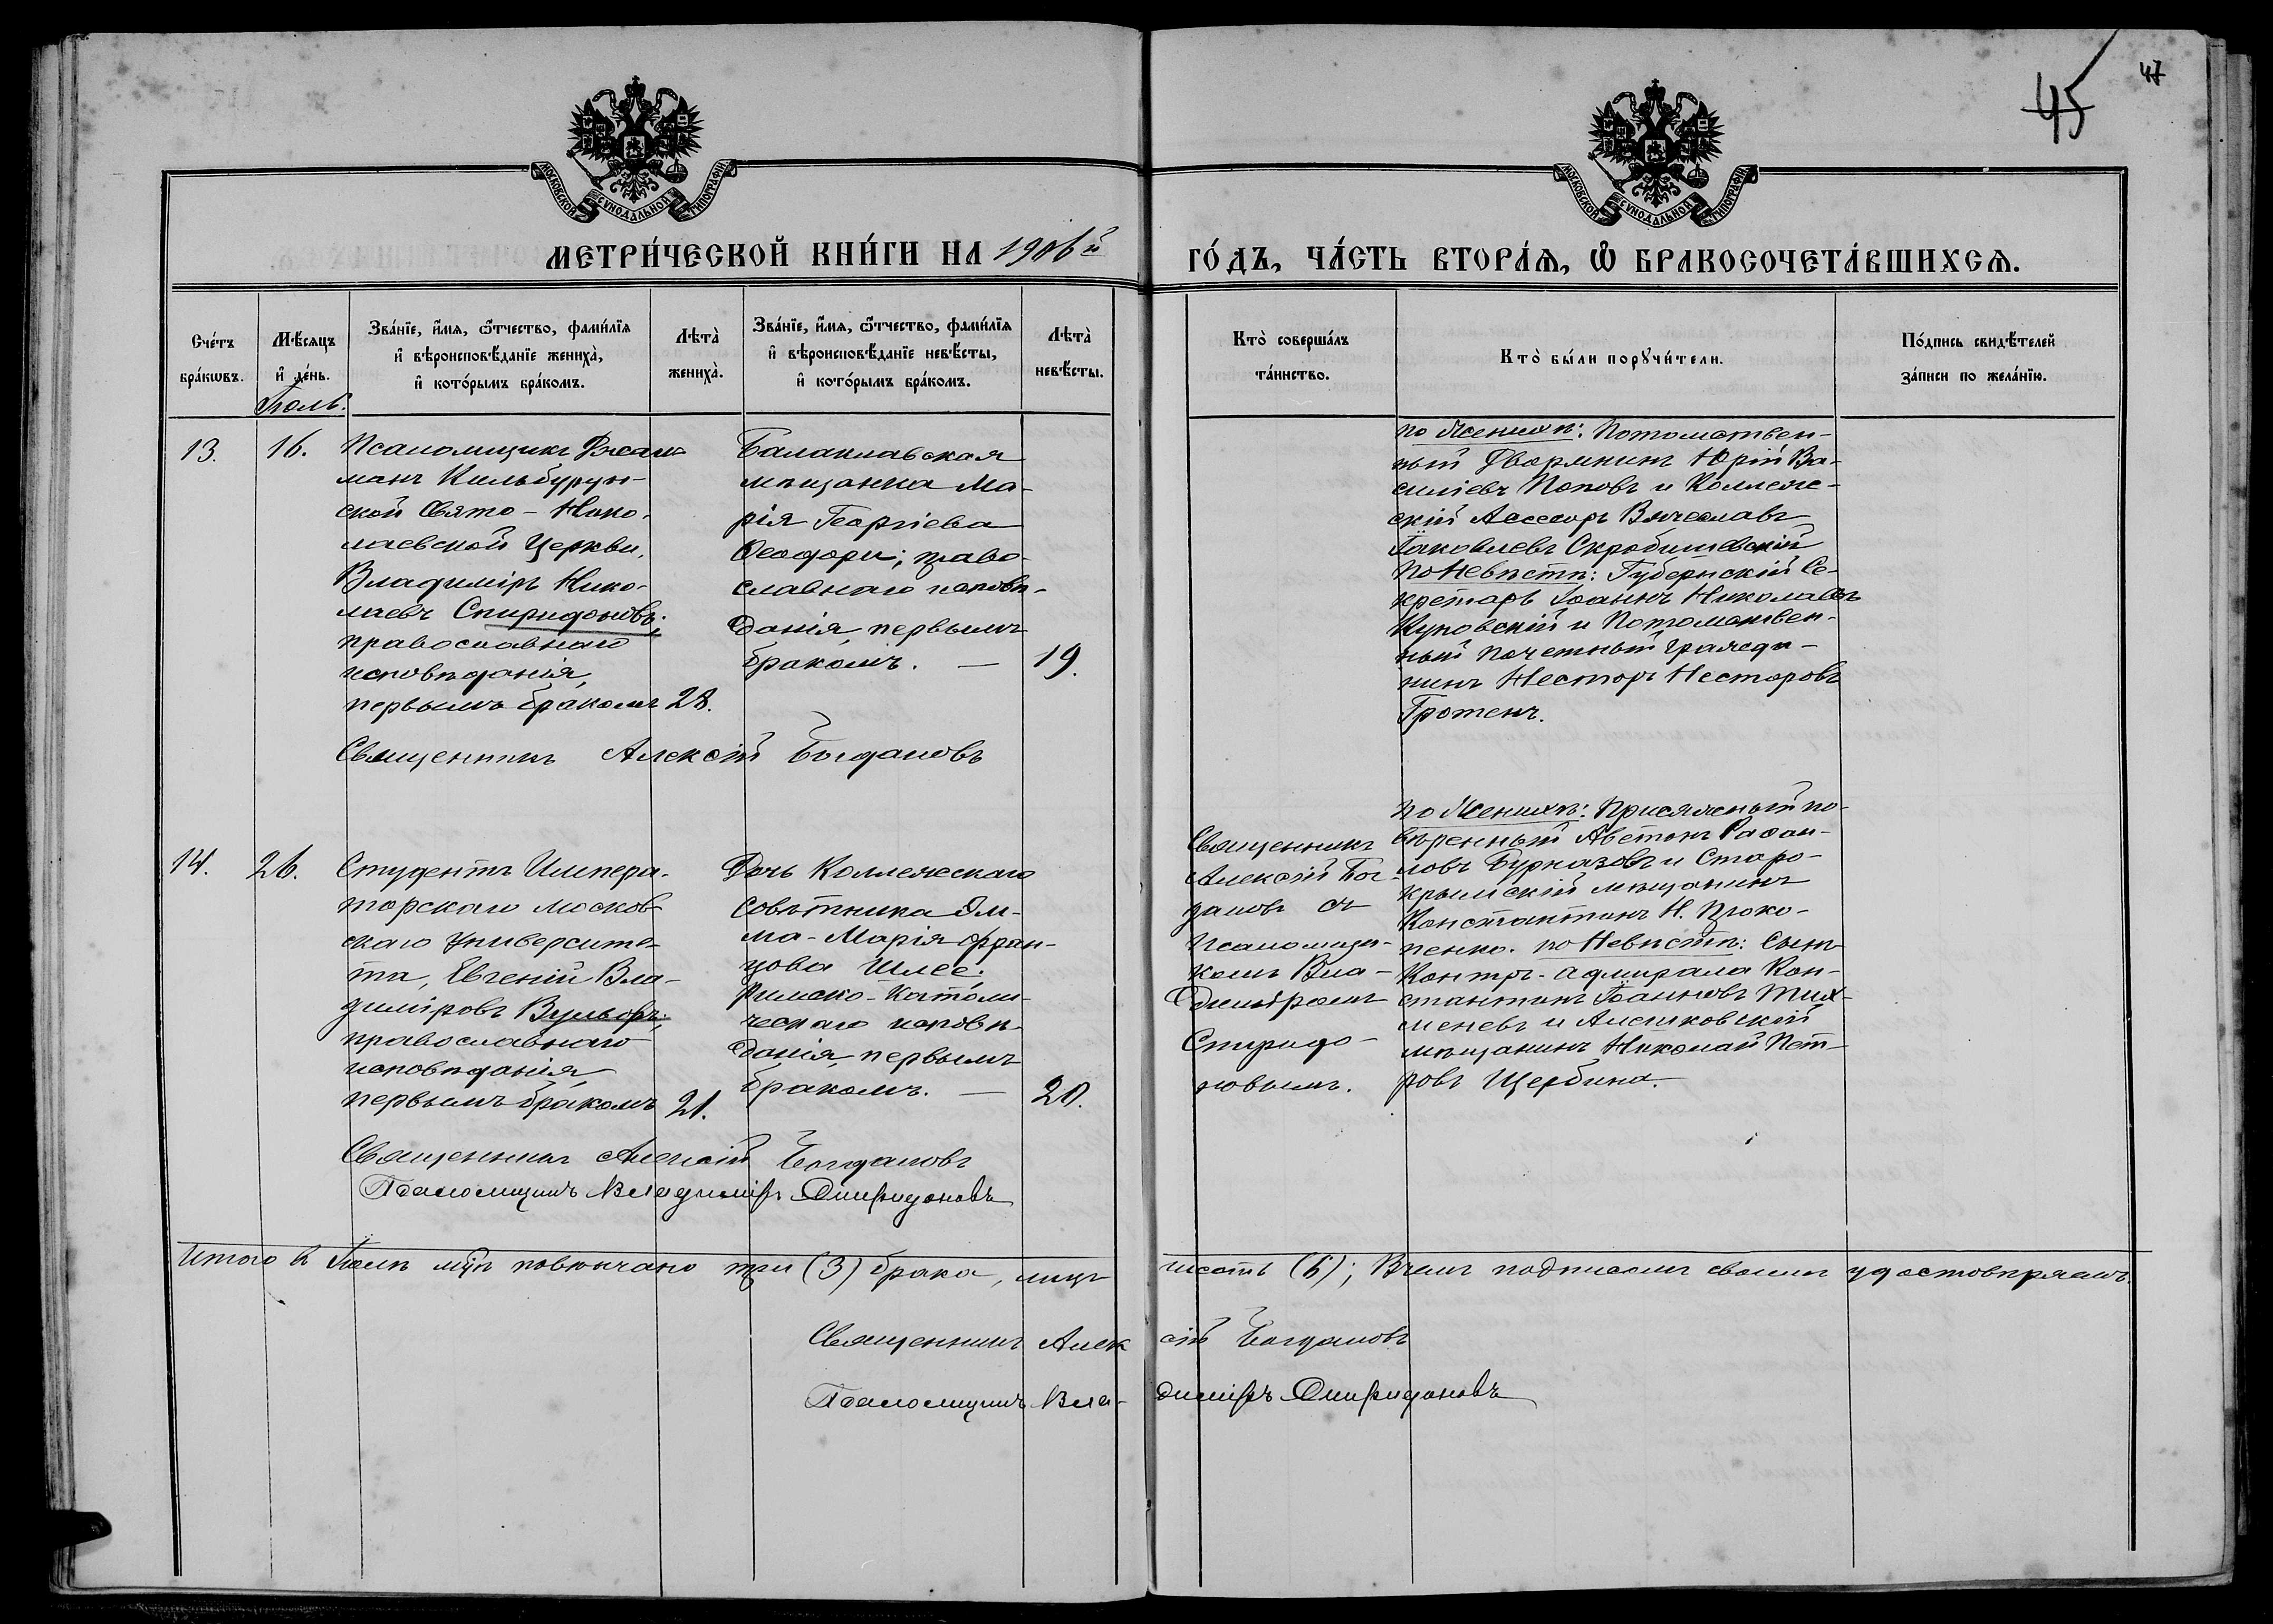 45
47
МОСКОВСКОЙ СУНОДАЛЬНОЙ ТИПОГРАФІИ
МОСКОВСКОЙ СУНОДАЛЬНОЙ ТИПОГРАФІИ
МЕТРИ́ЧЕСКОЙ КНИ́ГИ НА 1906й
ГО́ДЪ, ЧА́СТЬ ВТОРА́Ѧ, Ѡ БРАКОСОЧЕТА́ВШИХСѦ.
Сче́тъ
бра́кѡвъ.
Мѣ́сѧцъ
и҆ де́нь.
Зва́нїе, и҆́мѧ, ѻ҆́тчество, фами́лїѧ
и҆ вѣроисповѣ́данїе жениха̀,
и҆ кото́рымъ бра́комъ.
Лѣта̀
жениха̀.
Зва́нїе, и҆́мѧ, ѻ҆́тчество, фами́лїѧ
и҆ вѣроисповѣ́данїе невѣ́сты,
и҆ кото́рымъ бра́комъ.
Лѣта̀
невѣ́сты.
Кто̀ соверша́лъ
та́инство.
Кто̀ бы́ли порꙋчи́тели.
По́дпись свидѣ́телей
за́писи по жела́нїю.
Іюль.
13.
16.
Псаломщикъ
манъ Кильбурун-
ской Свято-Нико-
лаевской Церкви,
Владиміръ Нико-
лаевъ Спиридоновъ;
православнаго
исповѣданія,
первымъ бракомъ
28.
Балаклавская
мѣщанка Ма-
рія Георгіева
Феофори; право-
славнаго исповѣ-
данія, первымъ
бракомъ. —
19.
по Женихѣ: Потомствен-
ный Дворянинъ Юрій Ва-
силіевъ Поповъ и Коллеж-
скій Ассесоръ Вячеславъ
Іаковлевъ Скробишевскій
по Невѣстѣ: Губернскій Се-
кретарь Іоаннъ Николаевъ
Куновскій и Потомствен-
ный почетный гражда-
нинъ Несторъ Несторовъ
Гротенъ.
Священникъ Алексій Богдановъ
14.
26.
Студентъ Импера-
торскаго Москов-
скаго Университе-
та, Евгеній Вла-
диміровъ Вульфъ;
православнаго
исповѣданія,
первымъ бракомъ
21.
Дочь Коллежскаго
Совѣтника Эм-
ма-Марія Фран-
цова Шлее;
Римско-Католи-
ческаго исповѣ-
данія, первымъ
бракомъ. —
20.
Священникъ
Алексій Бог-
дановъ съ
Псаломщи-
комъ Вла-
диміромъ
Спиридо-
новымъ.
по Женихѣ: Присяжный по-
вѣренный Аветикъ Рафаи-
ловъ Бурназовъ и Старо-
крымскій мѣщанинъ
Константинъ Н. Проко-
пенко. по Невѣстѣ: Сынъ
Контръ-адмирала Кон-
стантинъ Іоанновъ Тих-
меневъ и Алешковскій
мѣщанинъ Николай Пет-
ровъ Щербина.
Священникъ Алексій Богдановъ
Псаломщикъ Владиміръ Спиридоновъ
Итого въ Іюлѣ мцѣ повѣнчано три (3) брака, лицъ шесть (6); Въ чемъ подписомъ своимъ удостовѣряемъ.
Священникъ Алексій Богдановъ
Псаломщикъ Владиміръ Спиридоновъ